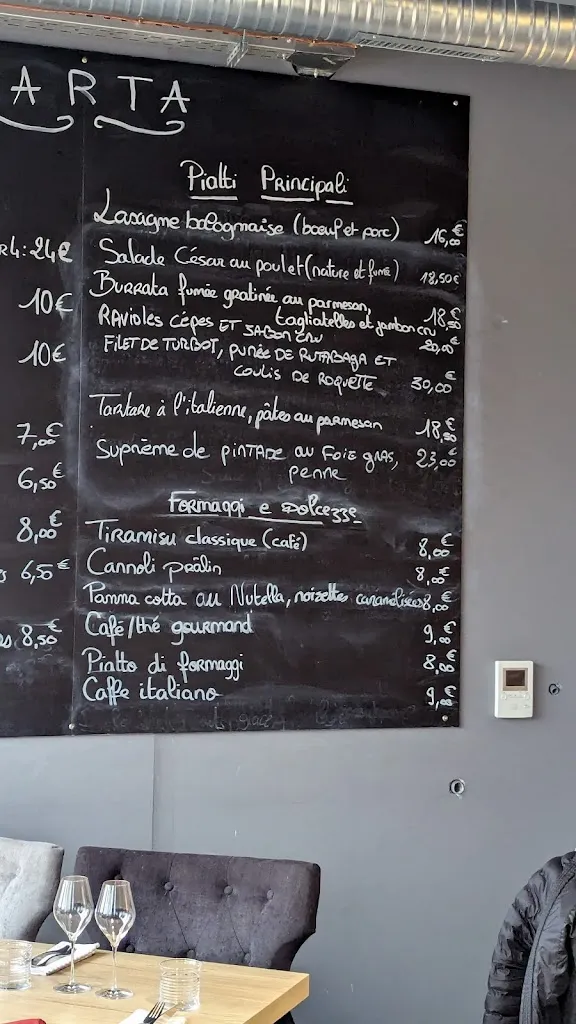 ARTA
R4: 24€
10€
10€
7,00€
6,50€
8,00€
s 6,50€
s 8,50€
Piatti Principali
Lasagne bolognaise (boeuf et porc) 16,00€
Salade César au poulet (nature et fumé) 18,50€
Burrata fumée gratinée au parmesan,
tagliatelles et jambon cru 18,50€
RAVIOLES CÈPES ET JAMBON CRU 20,00€
FILET DE TURBOT, PURÉE DE RUTABAGA ET
COULIS DE ROQUETTE 30,00€
Tartare à l'italienne, pâtes au parmesan 18,50€
Suprème de PINTADE au FOIE gras, 23,00€
penne
Formaggi e Dolcezze
Tiramisu classique (café) 8,00€
Cannoli pralin 8,00€
Panna cotta au Nutella, noisettes caramélisées 8,00€
Café/thé gourmand 9,00€
Piatto di formaggi 8,00€
Caffe italiano 9,00€